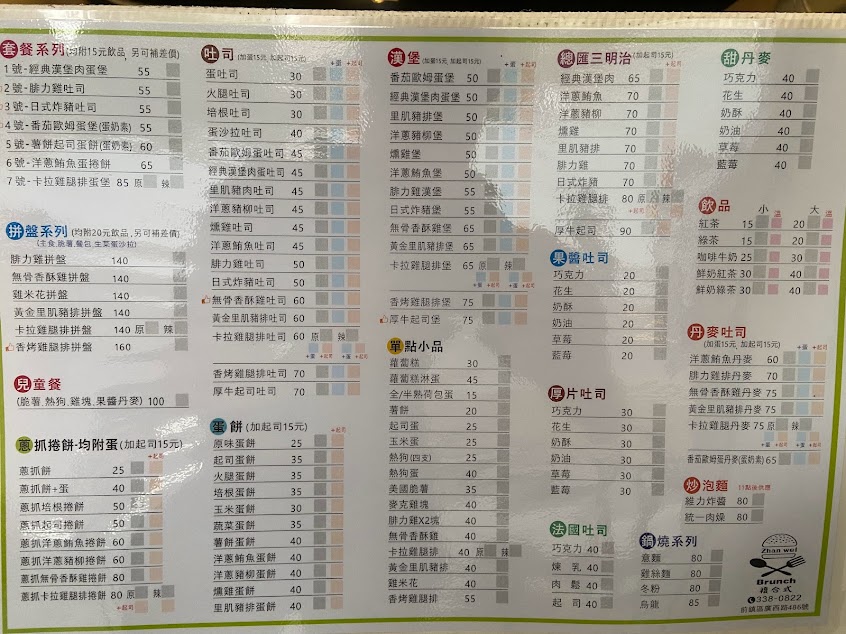 套餐系列(均附15元飲品, 另可補差價)
1號-經典漢堡肉蛋堡 55
2號-腓力雞吐司 55
3號-日式炸豬吐司 55
4號-番茄歐姆蛋堡(蛋奶素) 55
5號-薯餅起司蛋餅(蛋奶素) 60
6號-洋蔥鮪魚蛋捲餅 65
7號-卡拉雞腿排蛋堡 85 原 辣
拼盤系列(均附20元飲品, 另可補差價)
(主食,脆薯,餐包,生菜蛋沙拉)
腓力雞拼盤 140
無骨香酥雞拼盤 140
雞米花拼盤 140
黃金里肌豬排拼盤 140
卡拉雞腿排拼盤 140 原 辣
香烤雞腿排拼盤 160
兒童餐
(脆薯,熱狗,雞塊,果醬丹麥) 100
蔥抓捲餅-均附蛋(加起司15元)
+起司
蔥抓餅 25
蔥抓餅+蛋 40
蔥抓培根捲餅 50
蔥抓起司捲餅 50
蔥抓洋蔥鮪魚捲餅 60
蔥抓洋蔥豬柳捲餅 60
蔥抓無骨香酥雞捲餅 80
蔥抓卡拉雞腿排捲餅 80 原 辣
+起司
吐司(加蛋15元, 加起司15元)
+蛋 +起司
蛋吐司 30
火腿吐司 30
培根吐司 30
蛋沙拉吐司 40
番茄歐姆蛋吐司 45
經典漢堡肉吐司 45
里肌豬肉吐司 45
洋蔥豬柳吐司 45
燻雞吐司 45
洋蔥鮪魚吐司 45
腓力雞吐司 50
日式炸豬吐司 50
無骨香酥雞吐司 60
黃金里肌豬排吐司 60
卡拉雞腿排吐司 60 原 辣
+蛋 +起司 +蛋 +起司
香烤雞腿排吐司 70
厚牛起司吐司 70
蛋餅(加起司15元)
+起司
原味蛋餅 25
起司蛋餅 35
火腿蛋餅 35
培根蛋餅 35
玉米蛋餅 30
蔬菜蛋餅 35
薯餅蛋餅 40
洋蔥鮪魚蛋餅 40
洋蔥豬柳蛋餅 40
燻雞蛋餅 40
里肌豬排蛋餅 40
漢堡(加蛋15元, 加起司15元)
+蛋 +起司
番茄歐姆蛋堡 50
經典漢堡肉蛋堡 50
里肌豬排堡 50
洋蔥豬柳堡 50
燻雞堡 50
洋蔥鮪魚堡 50
腓力雞漢堡 55
日式炸豬堡 55
無骨香酥雞堡 65
黃金里肌豬排堡 65
卡拉雞腿排堡 65 原 辣
+蛋 +起司 +蛋 +起司
香烤雞腿排堡 75
厚牛起司堡 75
單點小品
蘿蔔糕 30
蘿蔔糕淋蛋 45
全/半熟荷包蛋 15
薯餅 20
起司蛋 25
玉米蛋 30
熱狗(四支) 25
熱狗蛋 40
美國脆薯 35
麥克雞塊 40
腓力雞X2塊 40
無骨香酥雞 40
卡拉雞腿排 40 原 辣
黃金里肌豬排 40
雞米花 40
香烤雞腿排 55
總匯三明治(加起司15元)
+起司
經典漢堡肉 65
洋蔥鮪魚 70
洋蔥豬柳 70
燻雞 70
里肌豬排 70
腓力雞 70
日式炸豬 70
卡拉雞腿排 80 原 辣
+起司 +起司
厚牛起司 90
果醬吐司
巧克力 20
花生 20
奶酥 20
奶油 20
草莓 20
藍莓 20
厚片吐司
巧克力 30
花生 30
奶酥 30
奶油 30
草莓 30
藍莓 30
法國吐司
巧克力 40
煉乳 40
肉鬆 40
起司 40
鍋燒系列
意麵 80
雞絲麵 80
冬粉 80
烏龍 85
甜丹麥
巧克力 40
花生 40
奶酥 40
奶油 40
草莓 40
藍莓 40
飲品 小 溫 大 溫
紅茶 15 20
綠茶 15 20
咖啡牛奶 25 30
鮮奶紅茶 30 40
鮮奶綠茶 30 40
丹麥吐司
(加蛋15元, 加起司15元)
+蛋 +起司
洋蔥鮪魚丹麥 60
腓力雞排丹麥 70
無骨香酥雞丹麥 75
黃金里肌豬排丹麥 75
卡拉雞腿丹麥 75 原 辣
+蛋 +起司 +蛋 +起司
番茄歐姆蛋丹麥(蛋奶素) 65
炒泡麵 11點後供應
維力炸醬 80
統一肉燥 80
Zhan wei
Brunch
禧合式
338-0822
前鎮區廣西路486號